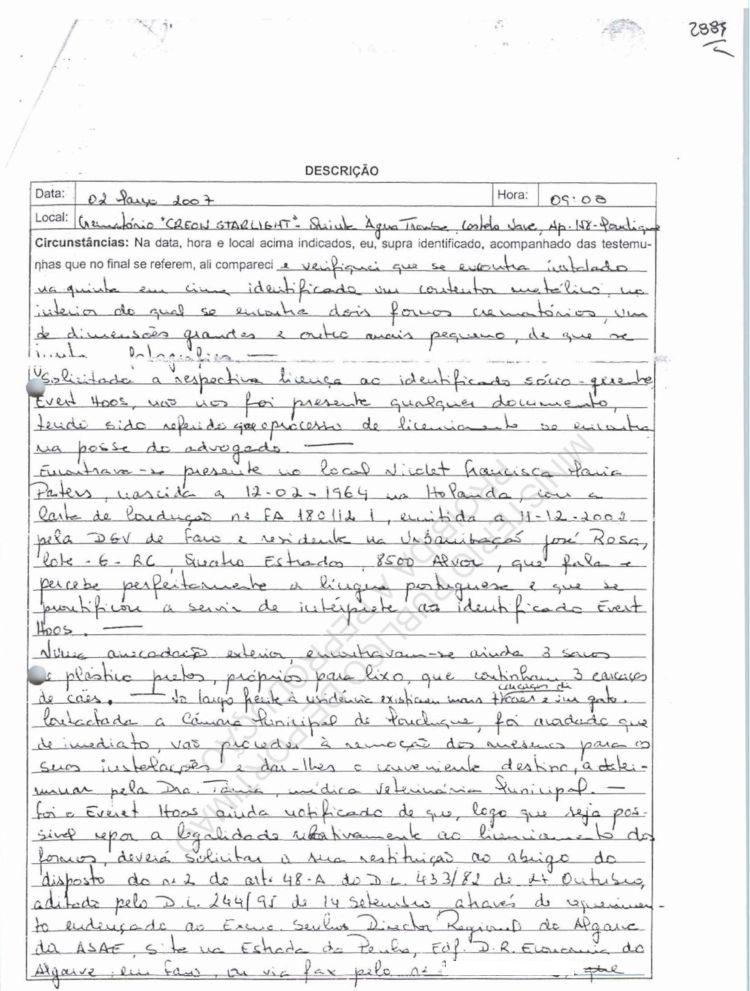 2885
DESCRIÇÃO
Data: 02 Março 2007 Hora: 09:00
Local: Crematório "CREON STARLIGHT" - Água
Circunstâncias: Na data, hora e local acima indicados, eu, supra identificado, acompanhado das testemu-
nhas que no final se referem, ali compareci e verifiquei que se encontra instalado
na quinta em cima identificada um contentor metálico, no
interior do qual se encontra dois fornos crematórios, um
de dimensões grandes e outro mais pequeno, de que se
fotográfica.
Solicitada a respectiva licença ao identificado sócio-gerente
Evert Hoos, não nos foi presente qualquer documento,
tendo sido referido que o processo de licenciamento se encontra
na posse do advogado.
Encontrava-se presente no local Nicolet Francisca Maria
Peters, nascida a 12-02-1964 na Holanda, com a
Carta de Condução nº FA 180112 1, emitida a 11-12-2002
pela DGV de Faro e residente na Urbanização José Rosa,
lote - 6 - RC, Quatro Estradas, 8500 Alvor, que fala e
percebe perfeitamente a língua portuguesa e que se
prontificou a servir de intérprete ao identificado Evert
Hoos.
Numa arrecadação exterior, encontravam-se ainda 3 sacos
de plástico pretos, próprios para lixo, que continham 3 carcaças
de cães. No largo frente à residência existiam mais carcaças de e um gato.
Contactada a Câmara Municipal de, foi que
de imediato, vão proceder à remoção dos mesmos para as
suas instalações e dar-lhes o conveniente destino, a deter-
minar pela Dra. Tânia, médica veterinária Municipal.
Foi o Everet Hoos ainda notificado de que, logo que seja pos-
sível repor a legalidade relativamente ao licenciamento dos
fornos, deverá solicitar a sua restituição ao abrigo do
disposto do nº 2 do artº 48-A do D.L. 433/82 de 27 Outubro,
aditado pelo D.L. 244/95 de 14 Setembro, através de requerimen-
to endereçado ao Exmo. Senhor Director Regional do Algarve
da ASAE, sito na Estrada da Penha, Edf. D.R. Economia do
Algarve, em Faro, ou via fax pelo nº que
MINISTÉRIO PÚBLICO PORTIMÃO
PROIBIDA A REPRODUÇÃO